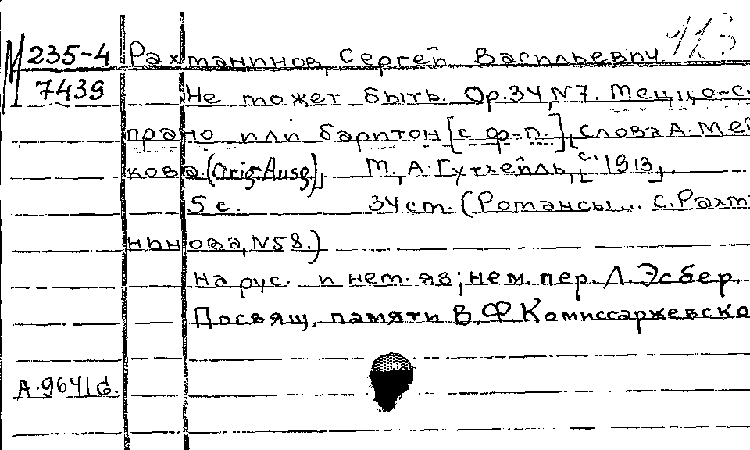 М 235-4 Рахманинов, Сергей Васильевич 413
7439 Не может быть. Ор.34, N7. Меццо-с
прано или баритон [с ф-п.], слова А. Мей
кова (Orig. Ausg.), М, А. Гутхейль, [с. 1913].
5 с. 34 cm. (Романсы .. С. Рахм
нынова, N58.)
на рус. и нем. яз; нем. пер. Л. Эсбер.
Посвящ. памяти В. Ф Комиссаржевско
А. 9641 б.